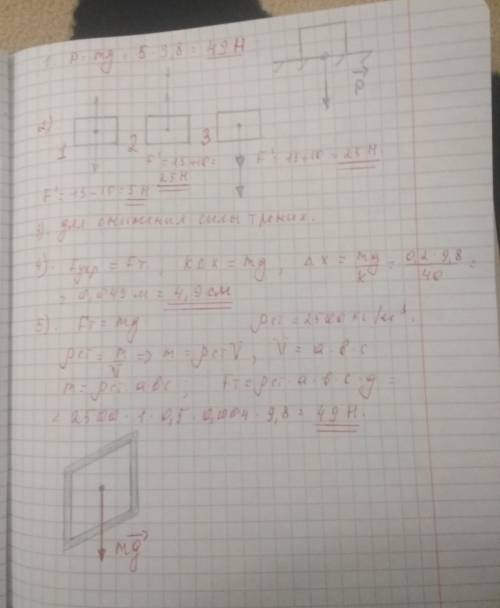 1. P = mg = 5 · 9,8 = 49 Н
P
2)
1 2 3
F' = 15+10 = 25 Н
F' = 15+10 = 25 Н.
F' = 15-10 = 5 Н
3. Для снижения силы трения.
4). Fупр = Fт. kΔx = mg, Δx = mg/k = 0,2 · 9,8/40 =
= 0,049 м = 4,9 см
5). Fт = mg ρст = 2500 кг/м³.
ρст = m/V => m = ρст V, V = a · b · c
m = ρст abc; Fт = ρст · a · b · c · g =
= 2500 · 1 · 0,5 · 0,004 · 9,8 = 49 Н.
mg